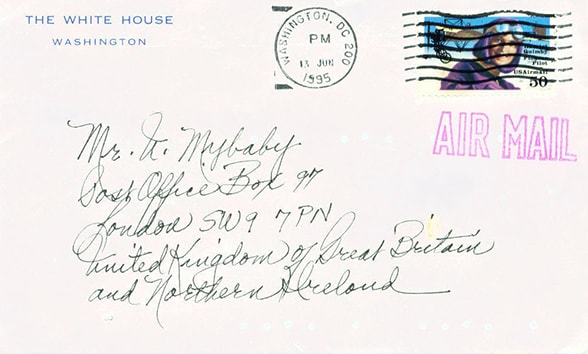 THE WHITE HOUSE
WASHINGTON
WASHINGTON, DC 200
PM
13 JUN
1995
Quimby
Pioneer
Pilot
USAirmail
50
AIR MAIL
Mr. N. Mybaby
Post Office Box 97
London SW9 7PN
United Kingdom of Great Britain
and Northern Ireland